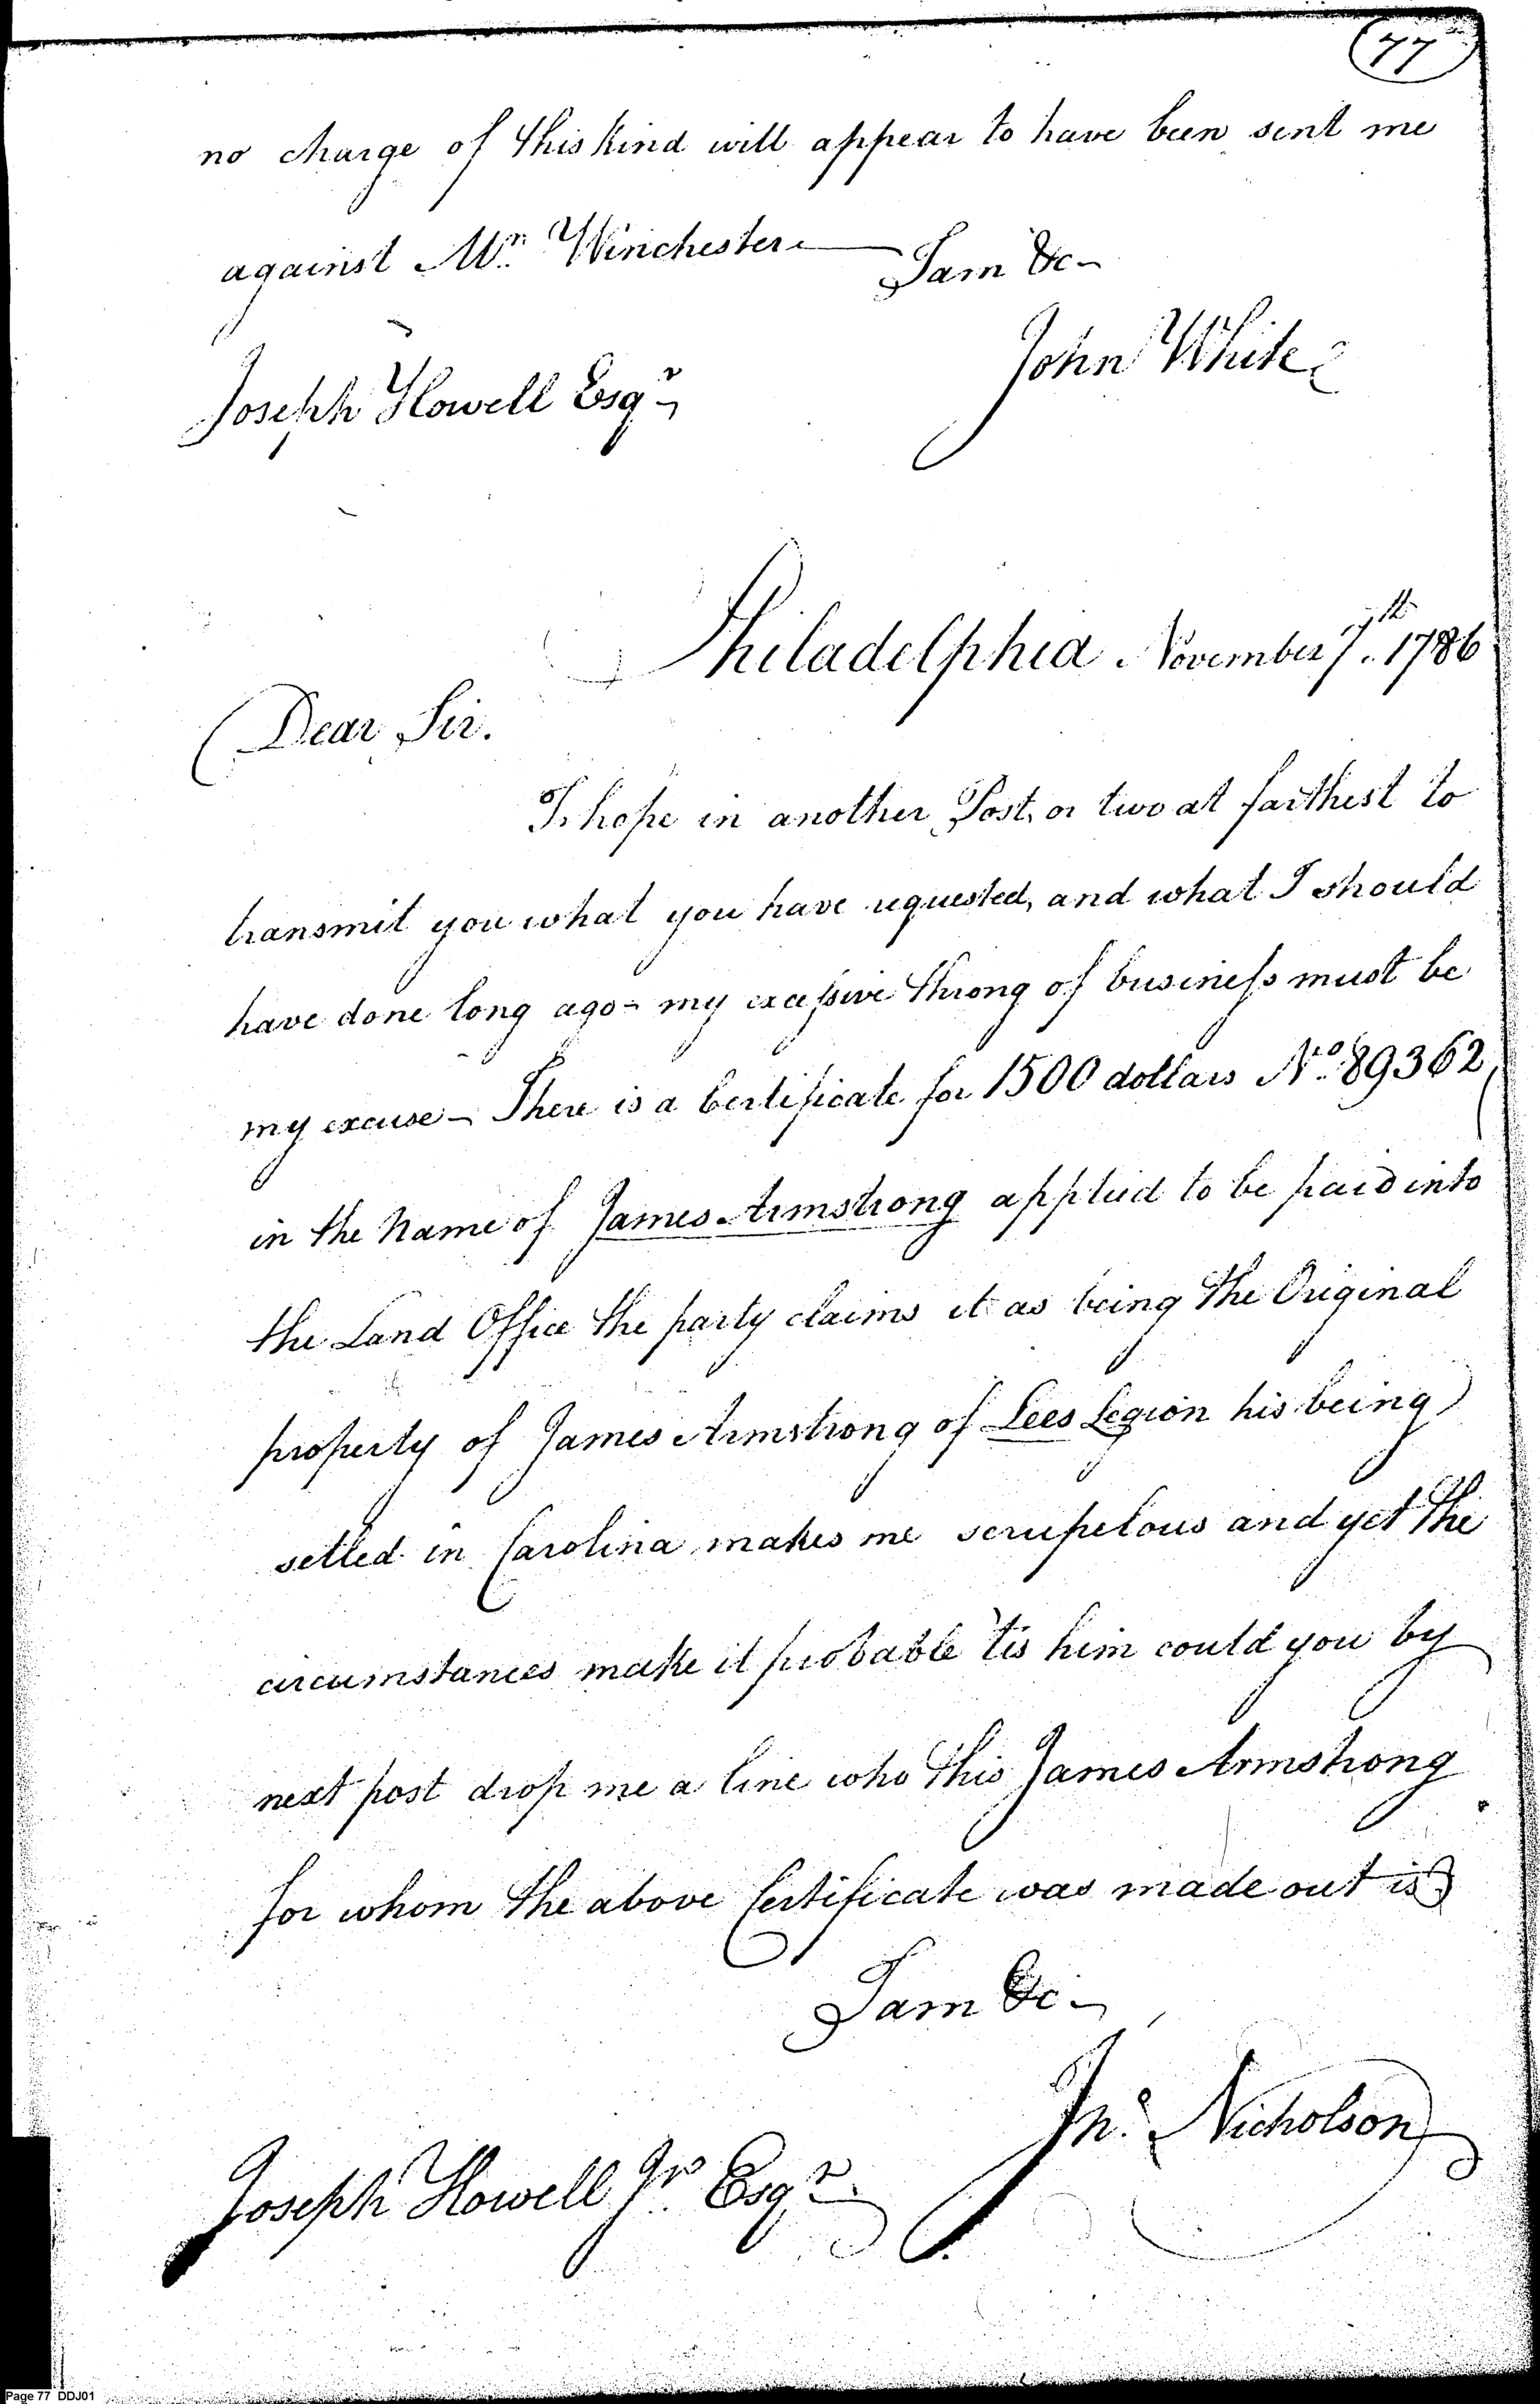 77
no charge of this kind will appear to have been sent me
against Mr. Winchester — I am &c—
John White
Joseph Howell Esqr
Philadelphia November 7th. 1786
Dear Sir.
I hope in another Post, or two at farthest to
transmit you what you have requested, and what I should
have done long ago - my excessive throng of business must be
my excuse — There is a Certificate for 1500 dollars No. 89362,
in the Name of James Armstrong applied to be paid into
the Land Office the party claims it as being the Original
property of James Armstrong of Lees Legion his being
setled in Carolina makes me scrupelous and yet the
circumstances make it probable 'tis him could you by
next post drop me a line who this James Armstrong
for whom the above Certificate was made out is
I am &c—
Jno. Nicholson
Joseph Howell Jr. Esqr.
Page 77 DDJ01